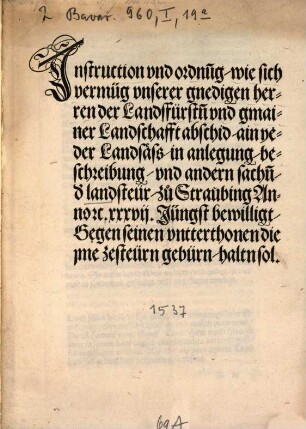 2 Bavar. 960, I, 19a
Instruction vnd ordnūg wie sich
vermüg vnserer gnedigen her-
ren der Landsfürstn̄ vnd gmai
ner Landschafft abschid ain ye-
der Landsäss in anlegung be-
schreibung vnd andern sachn̄
d landsteür zů Straubing An-
no rc. xxxvij. Jüngst bewilligt
Gegen seinen vnttherthonen die
jme zesteürn gebürn haltn sol.
1537
69A